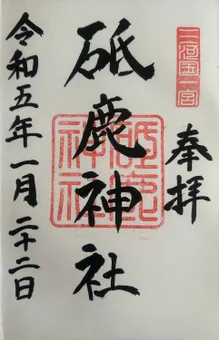 三河国一宮
奉拝
砥鹿神社
砥鹿神社
令和五年一月二十二日